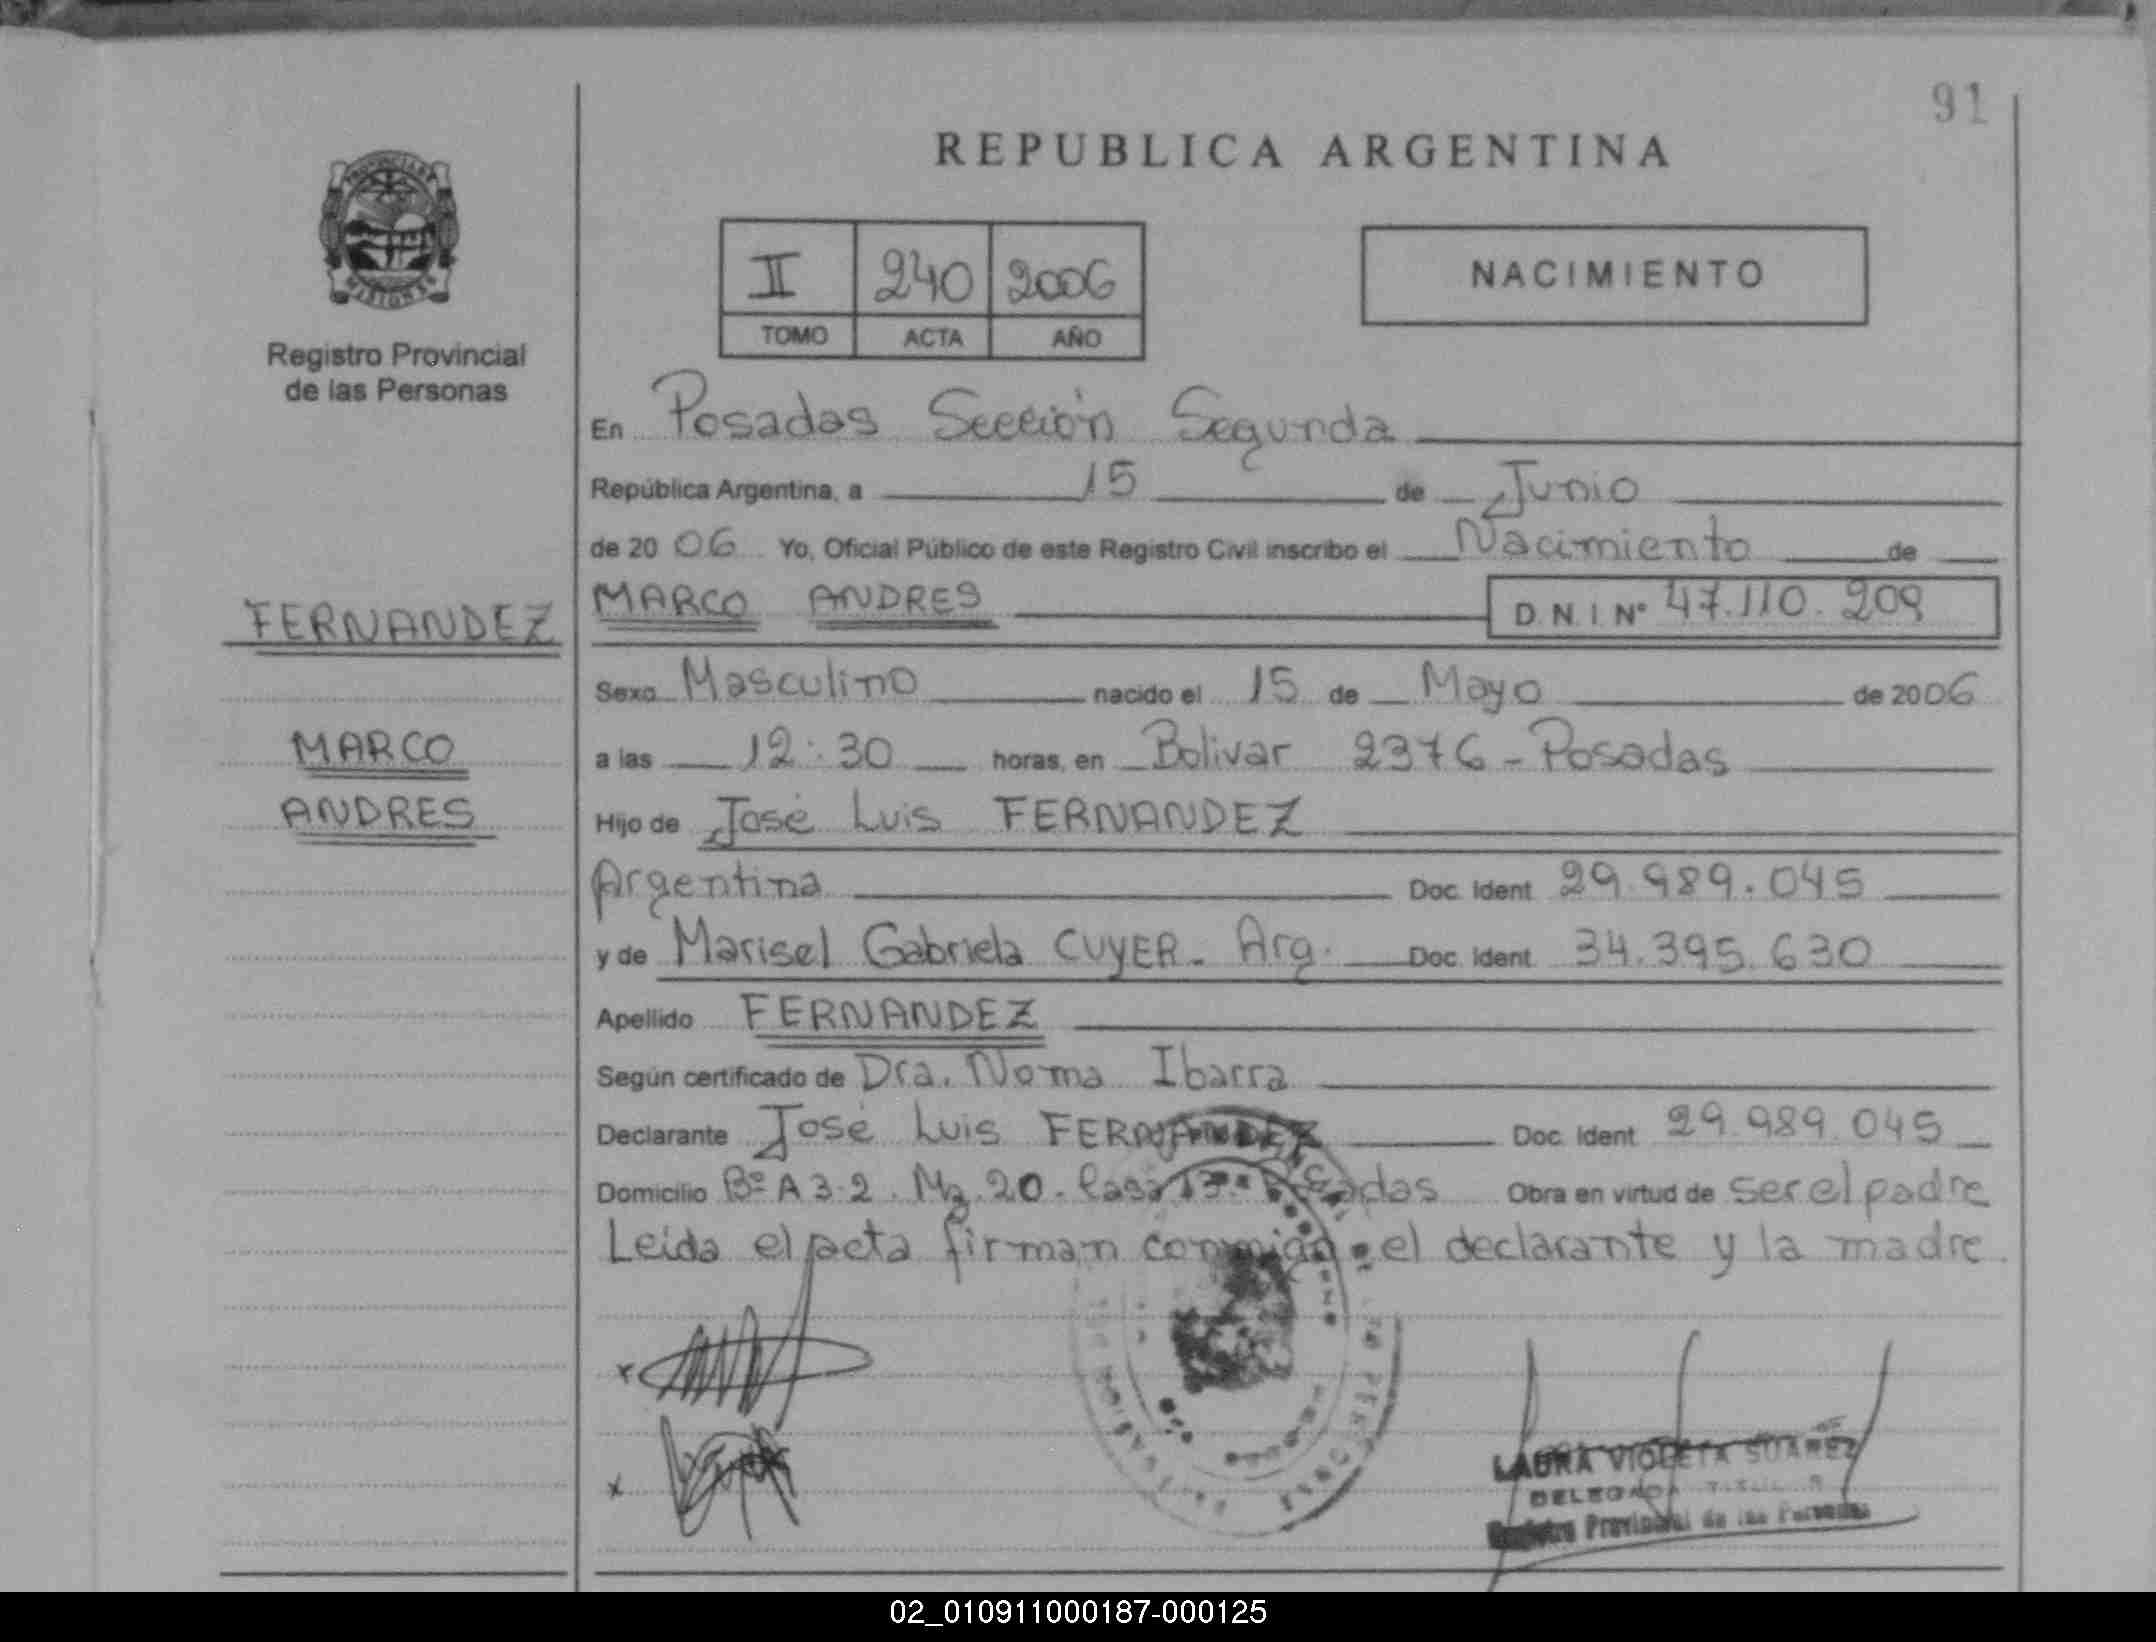 91
REPUBLICA ARGENTINA
PROVINCIA DE
MISIONES
Registro Provincial
de las Personas
II 240 2006
TOMO ACTA AÑO
NACIMIENTO
En Posadas Sección Segunda
República Argentina, a 15 de Junio
de 2006 Yo, Oficial Público de este Registro Civil inscribo el Nacimiento de
FERNANDEZ
MARCO ANDRES D.N.I. N° 47.110.209
Sexo Masculino nacido el 15 de Mayo de 2006
MARCO
a las 12:30 horas, en Bolivar 2376 - Posadas
ANDRES
Hijo de José Luis FERNANDEZ
Argentina Doc. Ident 29.989.045
y de Marisel Gabriela CUYER - Arg. Doc. Ident 34.395.630
Apellido FERNANDEZ
Según certificado de Dra. Noma Ibarra
Declarante José Luis FERNANDEZ Doc. Ident 29.989.045
Domicilio Bº A 3-2. Mz. 20. Casa 13 - Posadas Obra en virtud de ser el padre
Leida el acta firman conmigo el declarante y la madre
x
x
LAURA VIOLETA SUAREZ
DELEGADA TITULAR
Registro Provincial de las Personas
02_010911000187-000125